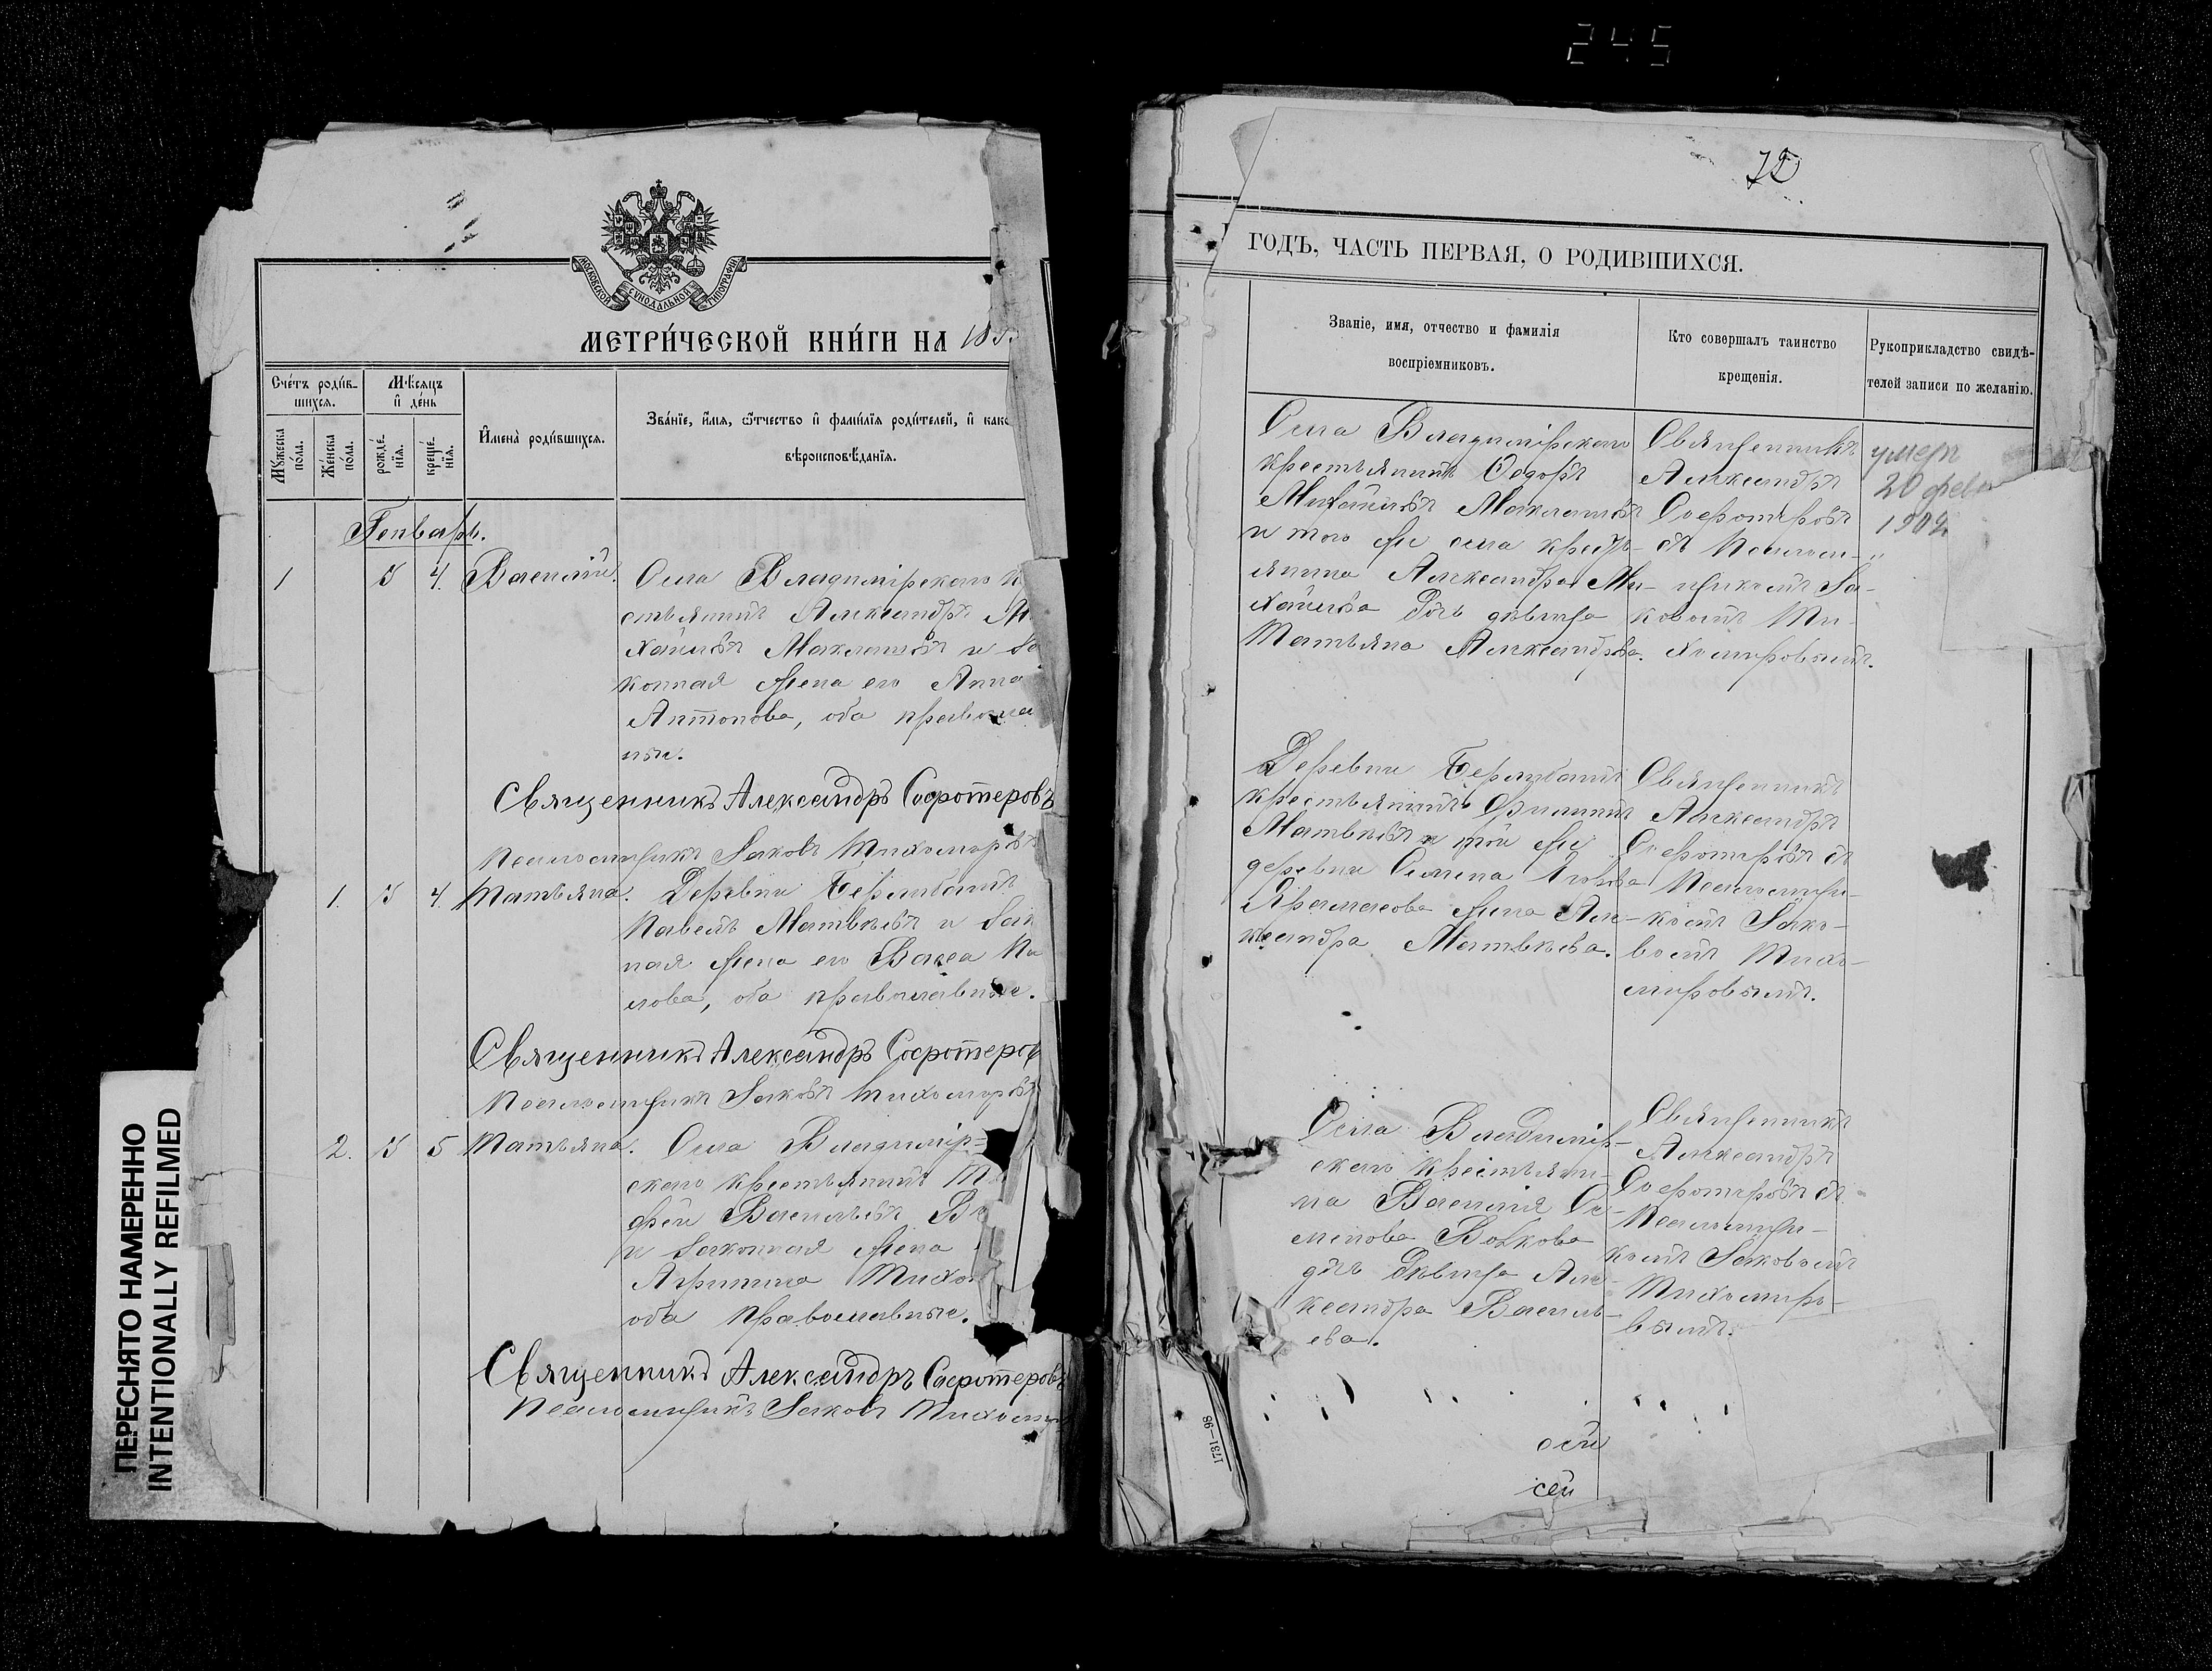 245
72
МОСКОВСКОЙ СѴНОДАЛЬНОЙ ТИПОГРАФІИ
МЕТРИ́ЧЕСКОЙ КНИ́ГИ НА 18
Сче́тъ роди́в-
шихся.
Мѣ́сяцъ
и҆ де́нь
Мꙋ́жеска
по́ла.
Же́нска
по́ла.
рожде́-
нїя.
креще́-
нїя.
И҆мена̀ роди́вшихся.
Зва́нїе, и҆́мя, ѻ҆́тчество и҆ фами́лїя роди́телей, и҆ как
вѣроисповѣ́данїя.
Генварь.
1 3 4. Василій.
Села Владимірскаго к
стьянинъ Александръ М
хайловъ Маклаковъ и за
конная жена его Анна
Антонова, оба православ
ные.
Священникъ Александръ Соѳротеровъ
Псаломщикъ Іаковъ Тихомировъ
1. 3 4. Татьяна.
Деревни
Павелъ Матвѣевъ и зак
ная жена его Васса
лова, оба православные.
Священникъ Александръ Соѳротеров
Псаломщикъ Іаковъ Тихомировъ
2. 3 5 Татьяна.
Села Владимір-
скаго крестьянинъ
фей Васильевъ
и законная жена
Агрипина Тихо
оба православные.
Священникъ Александръ Соѳротеровъ
Псаломщикъ Іаковъ Тихоми
ГОДЪ, ЧАСТЬ ПЕРВАЯ, О РОДИВШИХСЯ.
Званіе, имя, отчество и фамилія
воспріемниковъ.
Кто совершалъ таинство
крещенія.
Рукоприкладство свидѣ-
телей записи по желанію.
Села Владимірскаго
крестьянинъ Ѳедоръ
Михайловъ Маклаковъ
и того же села кресть-
янина Александра Ми-
хайлова дочь дѣвица
Татьяна Александрова.
Священникъ
Александръ
Соѳротеровъ
съ псалом-
щикомъ Іа-
ковомъ Ти-
хомировымъ.
умеръ
20 февр
1902
Деревни
крестьянинъ Филиппъ
Матвѣевъ и той же
деревни Семена
жена Але-
ксандра Матвѣева.
Священникъ
Александръ
Соѳротеровъ съ
псаломщи-
комъ Іако-
вомъ Тихо-
мировымъ.
Села Владимір-
скаго крестьяни-
на Василія Се-
менова Волкова
дочь дѣвица Але-
ксандра Василь-
ева.
Священникъ
Александръ
Соѳротеровъ съ
псаломщи-
комъ Іаковомъ
Тихомиро-
вымъ.
сей
1731—98
ПЕРЕСНЯТО НАМЕРЕННО
INTENTIONALLY REFILMED